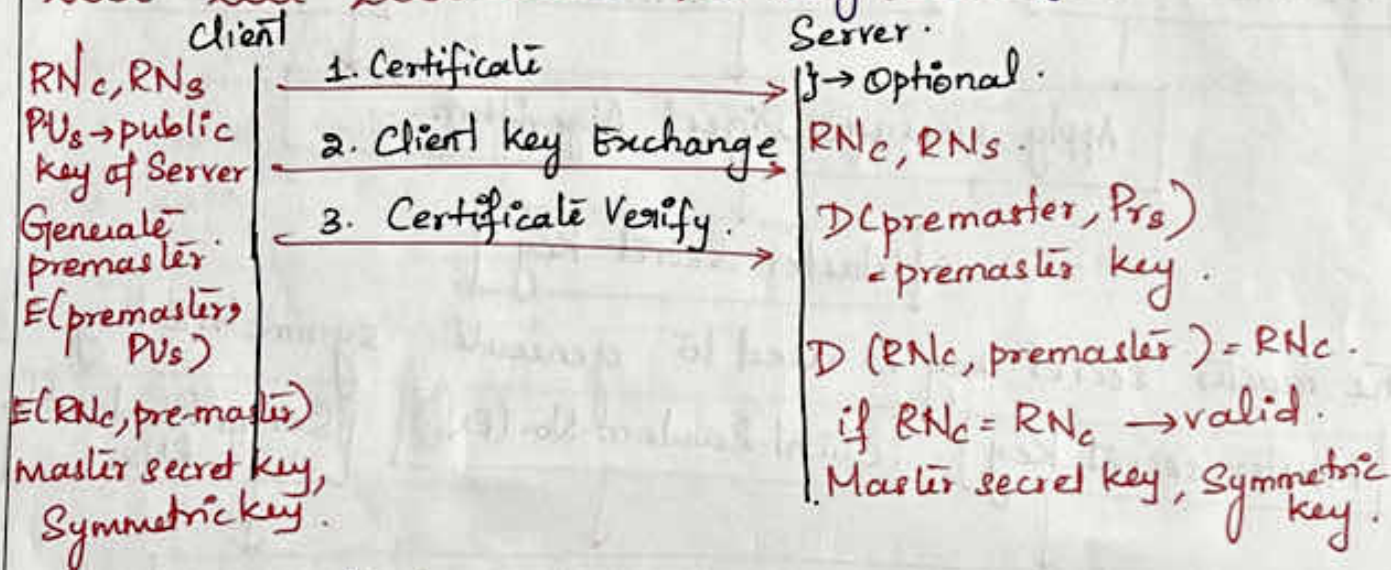 Client
Server.
RNc, RNs
PUs → public
key of Server
Generate
premaster
E(premaster,
PUs)
E(RNc, pre-master)
master secret key,
Symmetric key.
1. Certificate
2. Client key Exchange
3. Certificate Verify.
} → Optional.
RNc, RNs.
D(premaster, Prs)
= premaster key.
D (RNc, premaster) = RNc.
if RNc = RNc → valid.
Master secret key, Symmetric
key.